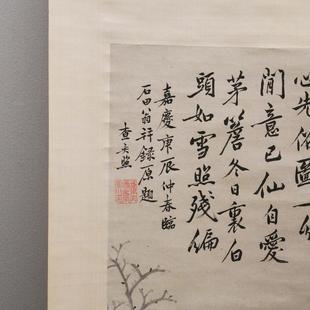 心先俗圖一
閒意已仙自愛
茅簷冬日裏白
頭如雪照殘編
嘉慶庚辰仲春臨
石田翁并錄原題
查奕照